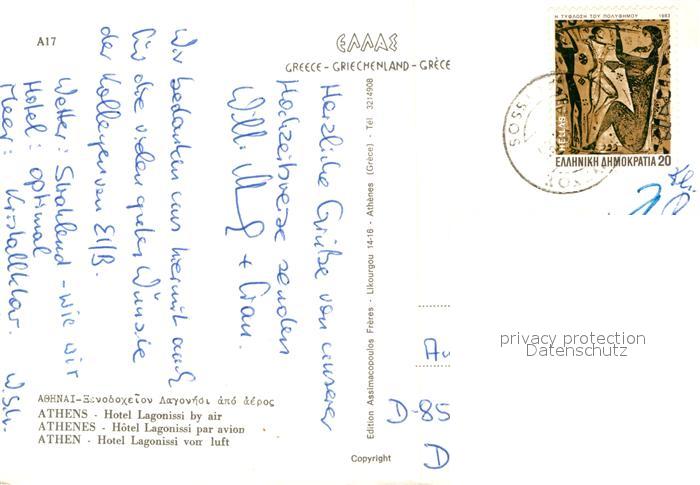 A17
ΕΛΛΑΣ
GREECE - GRIECHENLAND - GRÈCE
Herzliche Grüße von unserer
Hochzeitsreise senden
Willi + Frau.
Wir bedanken uns hiermit auch
für die vielen guten Wünsche
der Kollegen von EI/B.
Wetter: Strahlend - wie wir
Hotel: optimal
Meer: Kristallklar.
W.S.W.
Edition Assimacopoulos Frères - Likourgou 14-16 - Athènes (Grèce) - Tél. 3214908
Η ΤΥΦΛΩΣΗ ΤΟΥ ΠΟΛΥΦΗΜΟΥ 1983
HELLAS
ΕΛΛΗΝΙΚΗ ΔΗΜΟΚΡΑΤΙΑ 20
privacy protection
Datenschutz
D-85
ΑΘΗΝΑΙ-Ξενοδοχεῖον Λαγονήσι ἀπό ἀέρος
ATHENS - Hotel Lagonissi by air
ATHENES - Hôtel Lagonissi par avion
ATHEN - Hotel Lagonissi vom luft
Copyright